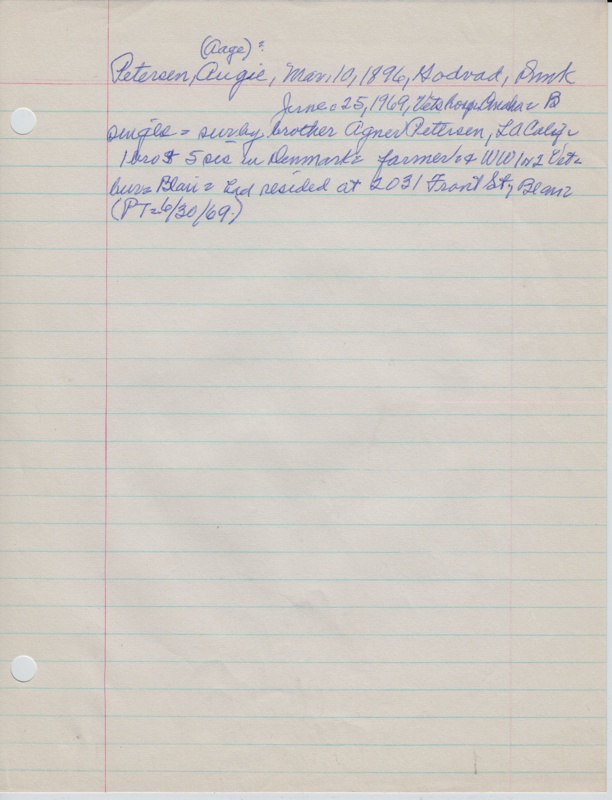 (Aage)?
Petersen, Augie, Mar, 10, 1896, Hodvad, Dmk
June 25, 1969, Vets hosp Omaha = B
single = sur by brother Agner Petersen, LA Calif =
1 bro & 5 sis in Denmark = farmer = & WW 1 n 2 Vet =
bur = Blair = had resided at 2031 Front St, Blair =
(PT = 6/30/69.)